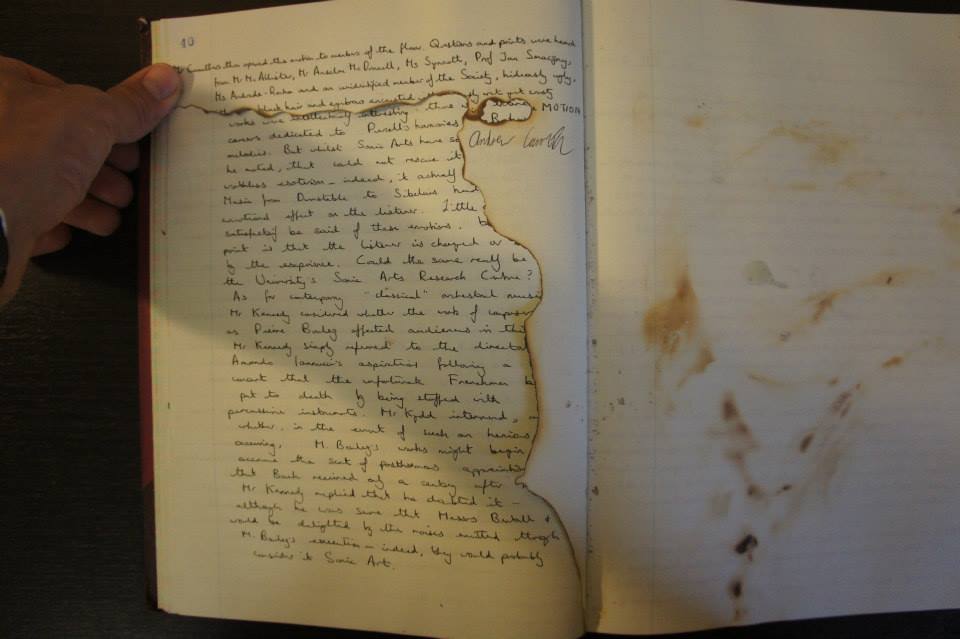 40
then opened the motion to members of the floor. Questions and points were heard
from Mr McAllister, Mr Anselm McDonnell, Ms Synnott, Prof Jan Smaczny,
Ms and an unidentified member of the Society, hideously ugly,
black hair and eyebrows
works were intellectually interesting, there MOTION
careers dedicated to Purcell's harmonies
melodies. But whilst Sonic Arts have so Andrew
he noted, that could not rescue it
worthless esotericism – indeed, it actually
Music from Dunstable to Sibelius had
emotional effect on the listener. Little
satisfactorily be said of these emotions.
point is that the listener is changed or
by the experience. Could the same really be
the University's Sonic Arts Research Centre?
As for contemporary "classical" orchestral music
Mr Kennedy considered whether the work of composer
as Pierre Boulez affected audiences in this
Mr Kennedy simply referred to the director
Armando Iannucci's aspiration following a
concert that the unfortunate Frenchman be
put to death by being stuffed with
percussive instruments. Mr Kydd intervened,
whether, in the event of such an heinous
occurring, M. Boulez's works might begin
assume the sort of posthumous appreciation
that Bach received only a century after
Mr Kennedy replied that he doubted it –
although he was sure that Messrs &
would be delighted by the noises emitted through
M. Boulez's execution – indeed, they would probably
consider it Sonic Art.